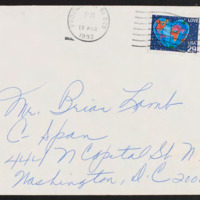 PM
1992
LOVE
USA
29
Mr. Brian Lamb
C-Span
444 N Capital St N.
Washington, D.C 2000